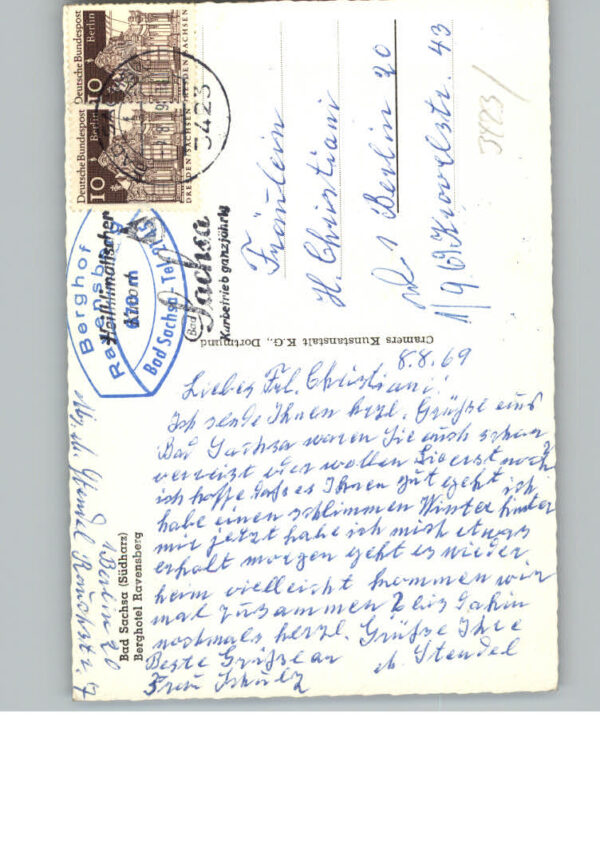 8.8.69
Liebes Frl. Christiani!
Ich sende Ihnen herzl. Grüße aus
Bad Sachsa waren Sie auch schon
verreist oder wollen Sie erst noch?
ich hoffe daß es Ihnen gut geht ich
habe einen schlimmen Winter hinter
mir jetzt habe ich mich etwas
erholt morgen geht es wieder
heim vielleicht kommen wir
mal zusammen bis dahin
nochmals herzl. Grüße Ihre
Stendel
Beste Grüße an
Frau Scholz
Bad Sachsa (Südharz)
Berghotel Ravensberg
Stendel
1 Berlin 20
7
Cramers Kunstanstalt K.G., Dortmund
Fräulein
H. Christiani
1 Berlin 20
43
3423/
Deutsche Bundespost
Berlin
10
DRESDEN/SACHSEN
Deutsche Bundespost
Berlin
10
DRESDEN/SACHSEN
3423
Heilklimatischer
Kurort
Bad Sachsa
Kurbetrieb ganzjährig
Berghof
Ravensberg
Bad Sachsa - Tel.